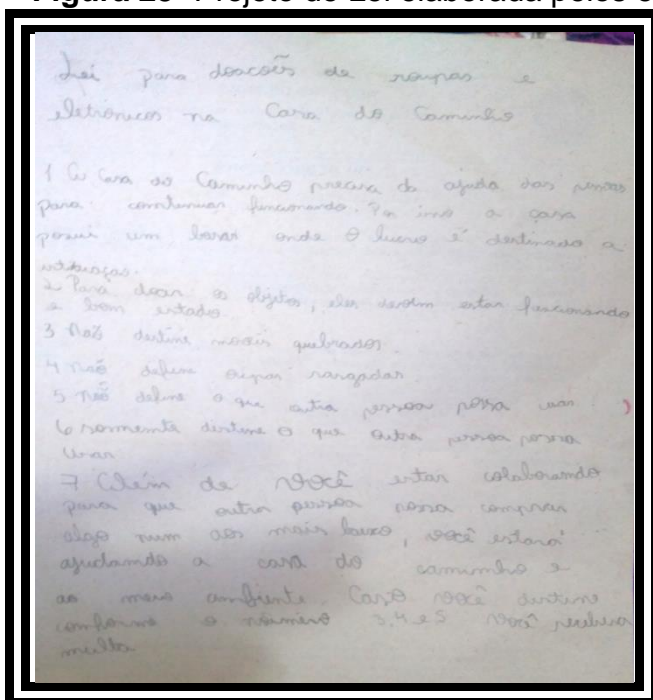 Lei para doacoẽs de roupas e
eletrônicos na Casa do Caminho
1 A Casa do Caminho precisa da ajuda das pessoas
para continuar funcionando. Por isso a casa
possui um bazar onde o lucro é destinado a
2 Para doar os objetos, eles devem estar funcionando
e bom estado
3 Naõ destine moveis quebrados.
4 naõ roupas rasgadas
5 naõ o que outra pessoa possa usar
6 somente destine o que outra pessoa possa
usar
7 Além de você estar colaborando
para que outra pessoa possa comprar
algo num mais baixo, você estará
ajudando a casa do caminho e
ao meio ambiente. Caso você destine
conforme o número 3,4 e 5 você receberá
multa